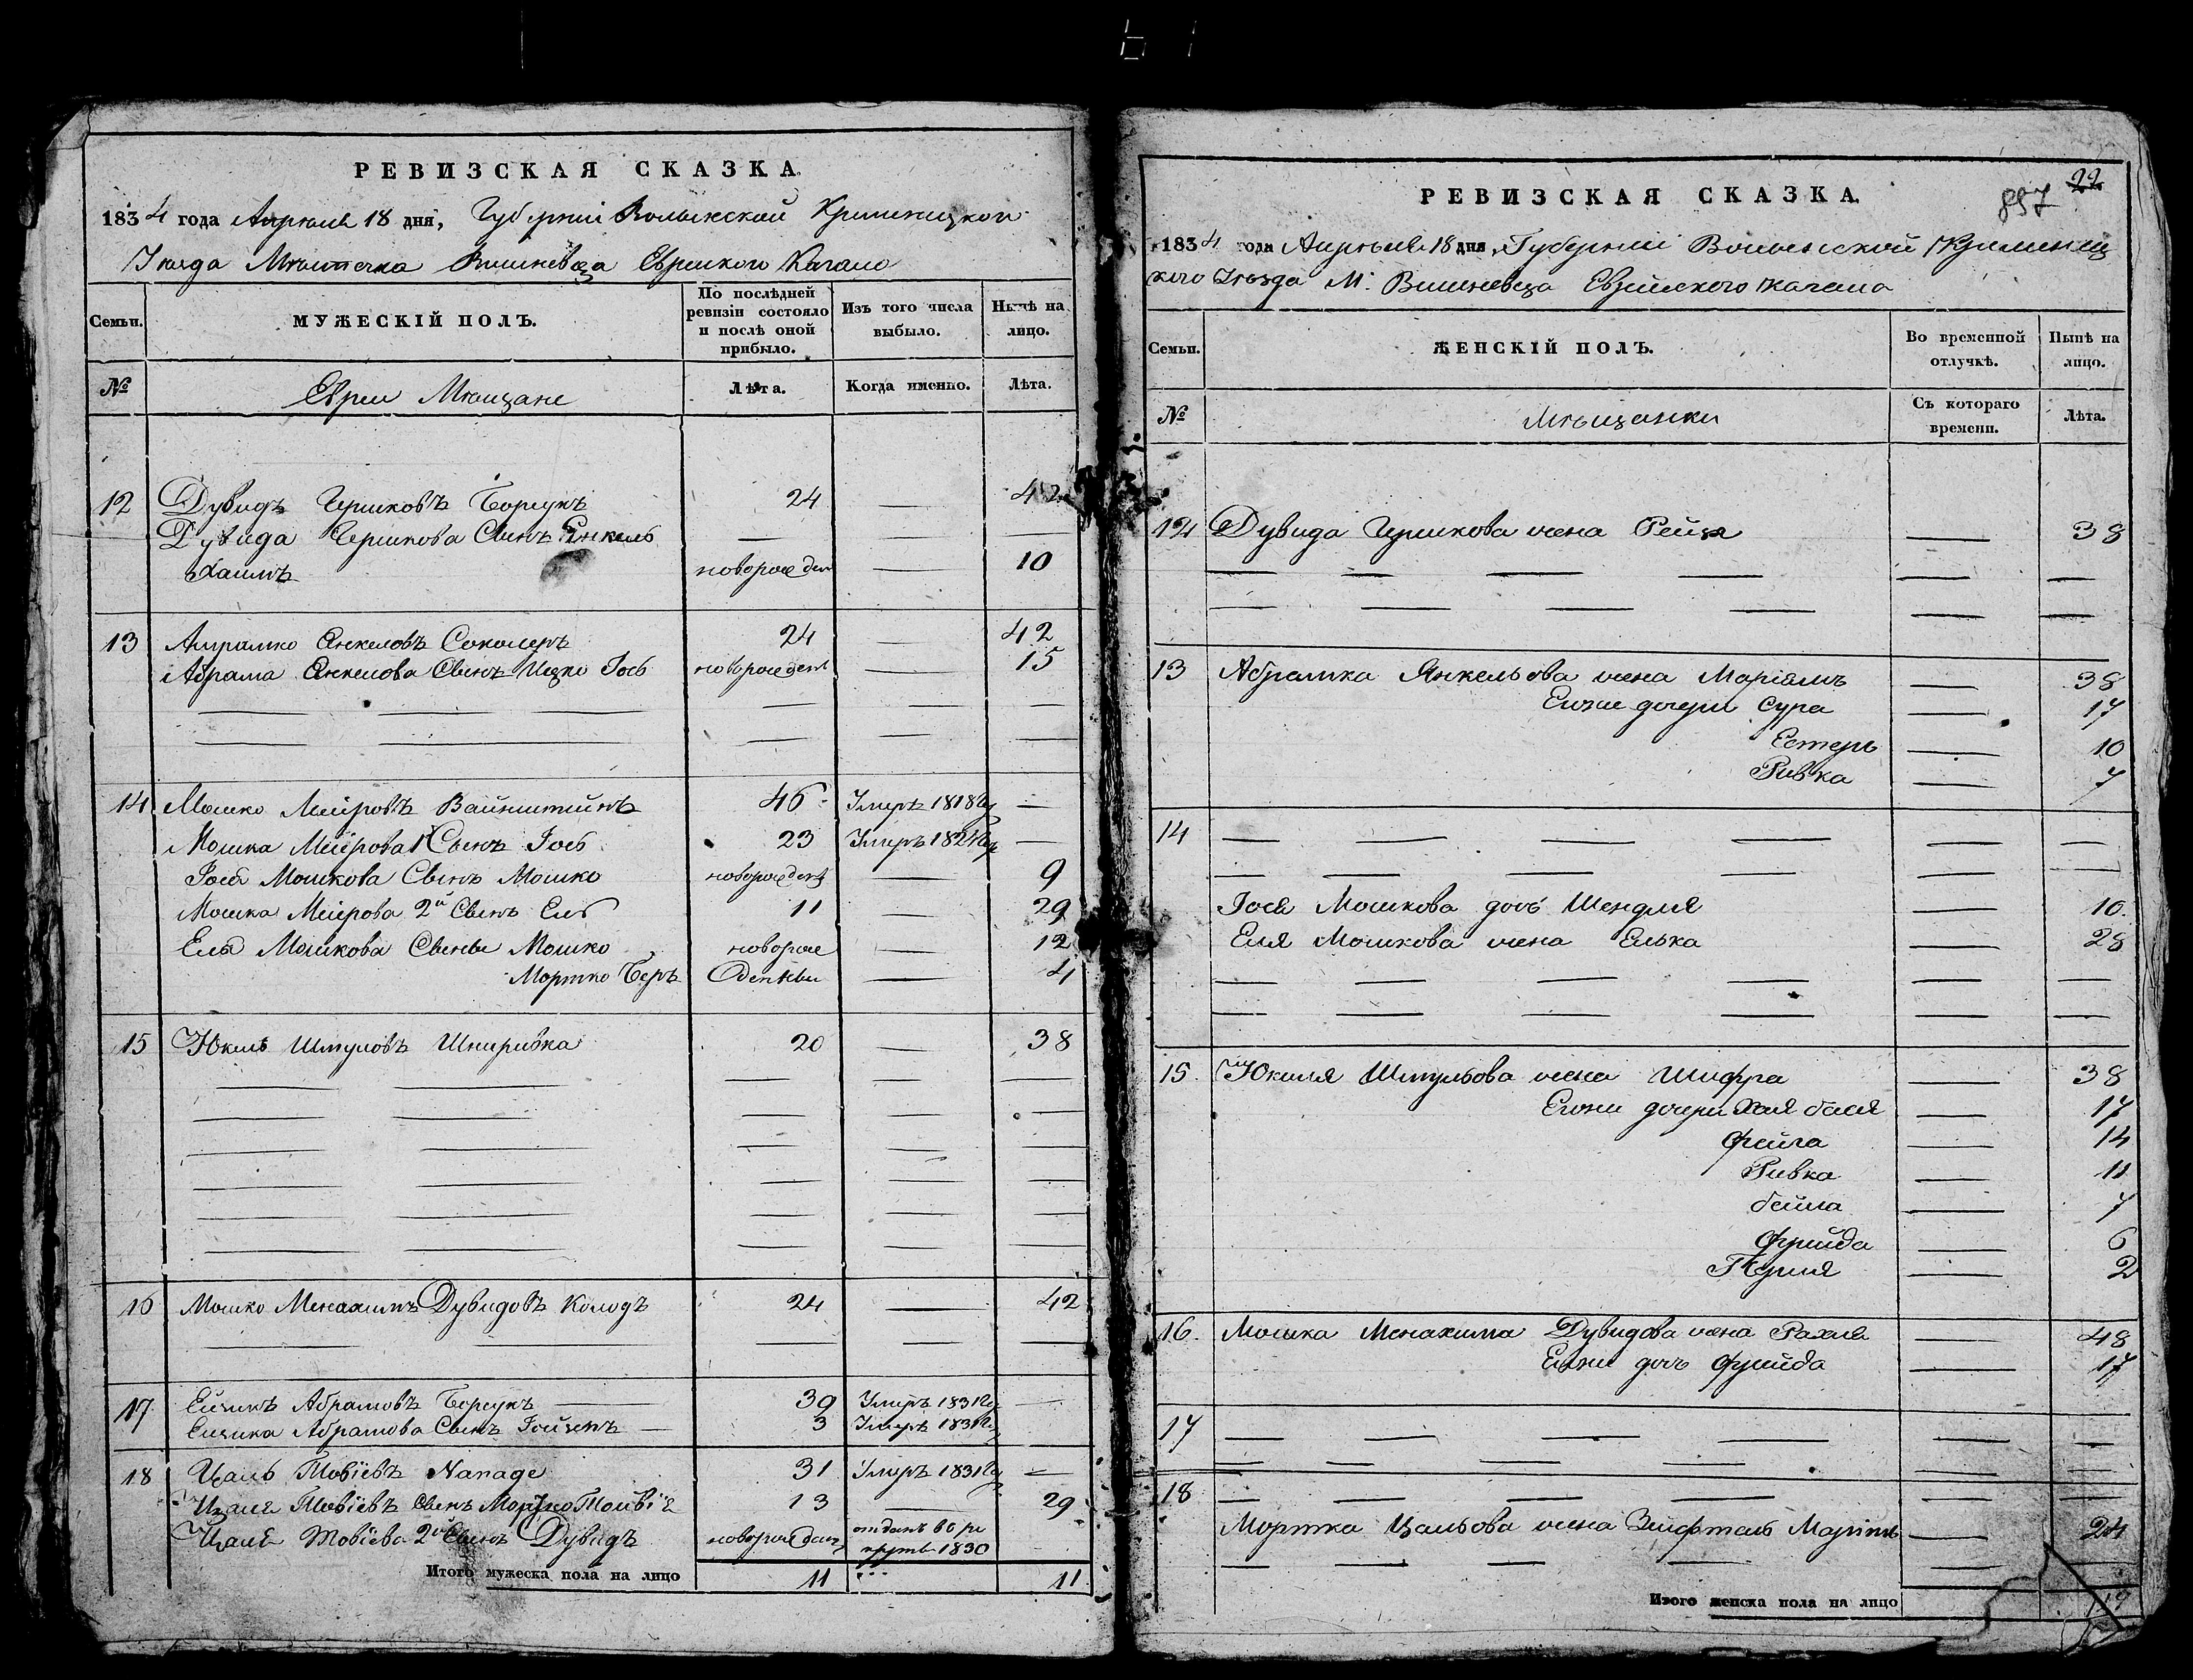 РЕВИЗСКАЯ СКАЗКА.
1834 года Апреля 18 дня, Губернии Волынской Кременецкого
Уезда Мѣстечка Вишневца Еврейского Кагала
Семьи.
МУЖЕСКІЙ ПОЛЪ.
По послѣдней ревизіи состояло и послѣ оной прибыло.
Изъ того числа выбыло.
Нынѣ на лицо.
№ Евреи Мѣщане Лѣта. Когда именно. Лѣта.
12 Дувидъ Гершковъ Борщукъ 24 — 42
Дувида Гершкова Сынъ Янкель — —
Хаимъ новорожден — 10
13 Абрамко Янкеловъ Соколеръ 24 — 42
Абрама Янкелова Сынъ Ицко Іось новорожденъ — 15
14 Мошко Меіровъ Вайнштейнъ 46 Умеръ 1818 —
Мошка Меірова 1 Сынъ Іось 23 Умеръ 1824 —
Іося Мошкова Сынъ Мошко новорожденъ — 9
Мошка Меірова 2й Сынъ Ель 11 — 29
Еля Мошкова Сыны Мошко новорож — 12
Мортко Беръ денны — 4
15 Юкель Шмуловъ Шпиривка 20 — 38
16 Мошко Менахимъ Дувидовъ Колодъ 24 — 42
17 Ейзикъ Абрамовъ Борщукъ 39 Умеръ 1831 —
Ейзика Абрамова Сынъ 3 Умеръ 1831
18 Цаль Товіевъ 31 Умеръ 1831 —
Цаля Товіевъ Сынъ Мортко Товія 13 — 29
Цаля Товіева 2й Сынъ Дувидъ новорожден отданъ в ре
круты 1830
Итого мужеска пола на лицо 11 11
22
897
РЕВИЗСКАЯ СКАЗКА.
1834 года Апреля 18 дня, Губерніи Волынской Кременец
кого Уѣзда М. Вишневца Еврейского Кагала
Семьи.
ЖЕНСКІЙ ПОЛЪ.
Во временной отлучкѣ.
Нынѣ на лицо.
№ Мѣщанки Съ котораго времени. Лѣта.
12 Дувида Гершкова жена Рейзя — 38
13 Абрамка Янкельова жена Маріямъ — 38
Егоже дочери Сура — 17
Естеръ — 10
Ривка — 7
14
Іося Мошкова дочь Шендля — 10
Еля Мошкова жена Елька — 28
15. Юкеля Шмульова жена Шифра — 38
Егоже дочери Хая бася — 17
Фейга — 14
Ривка — 11
бейла — 7
Фрейда — 6
Перля — 2
16. Мошка Менахима Дувидова жена Рахля — 48
Егоже дочь Фрейда — 17
17
18
Мортка Цальова жена — 24
Итого женска пола на лицо